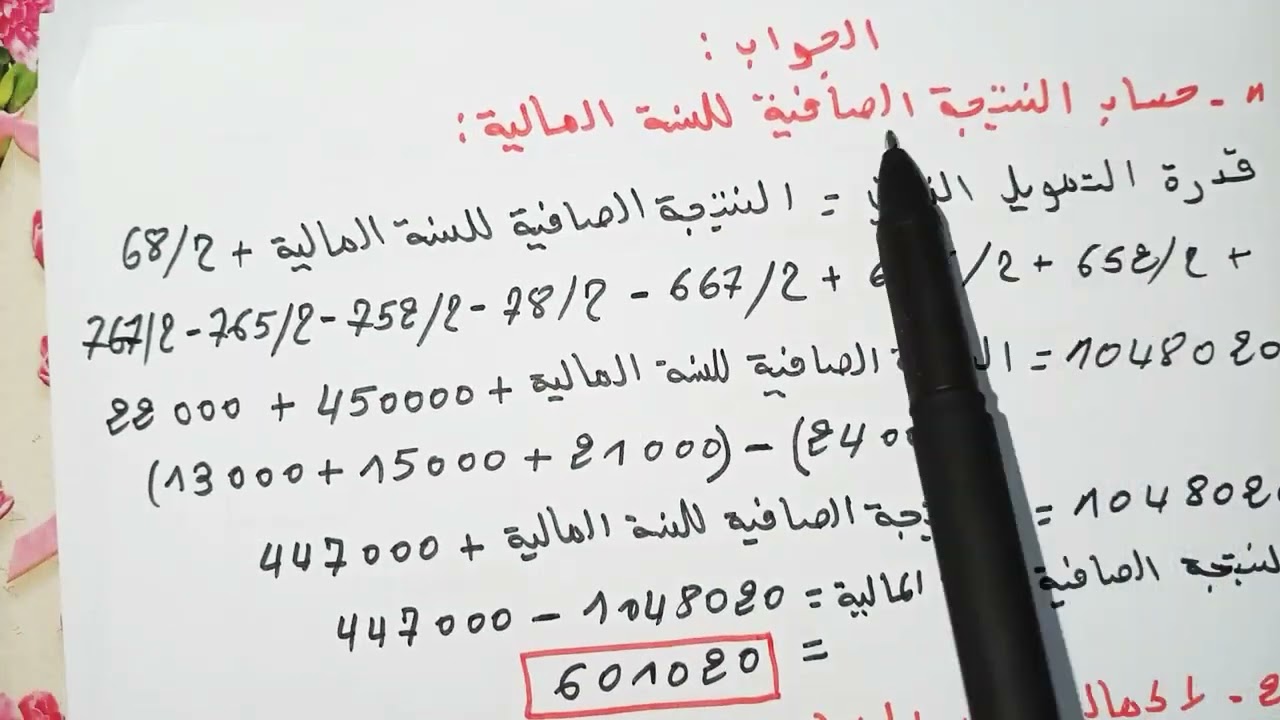 الجواب :
1- حساب النتيجة الصافية للسنة المالية :
قدرة التمويل = النتيجة الصافية للسنة المالية + 68/2
+ 652/2 + /2 + 667/2 - 78/2 - 752/2 - 765/2 - 767/2
1048020 = الصافية للسنة المالية + 450000 + 22000
(24 - (21000 + 15000 + 13000)
1048020 = الصافية للسنة المالية + 447000
النتيجة الصافية المالية = 1048020 - 447000
= 601020
2-